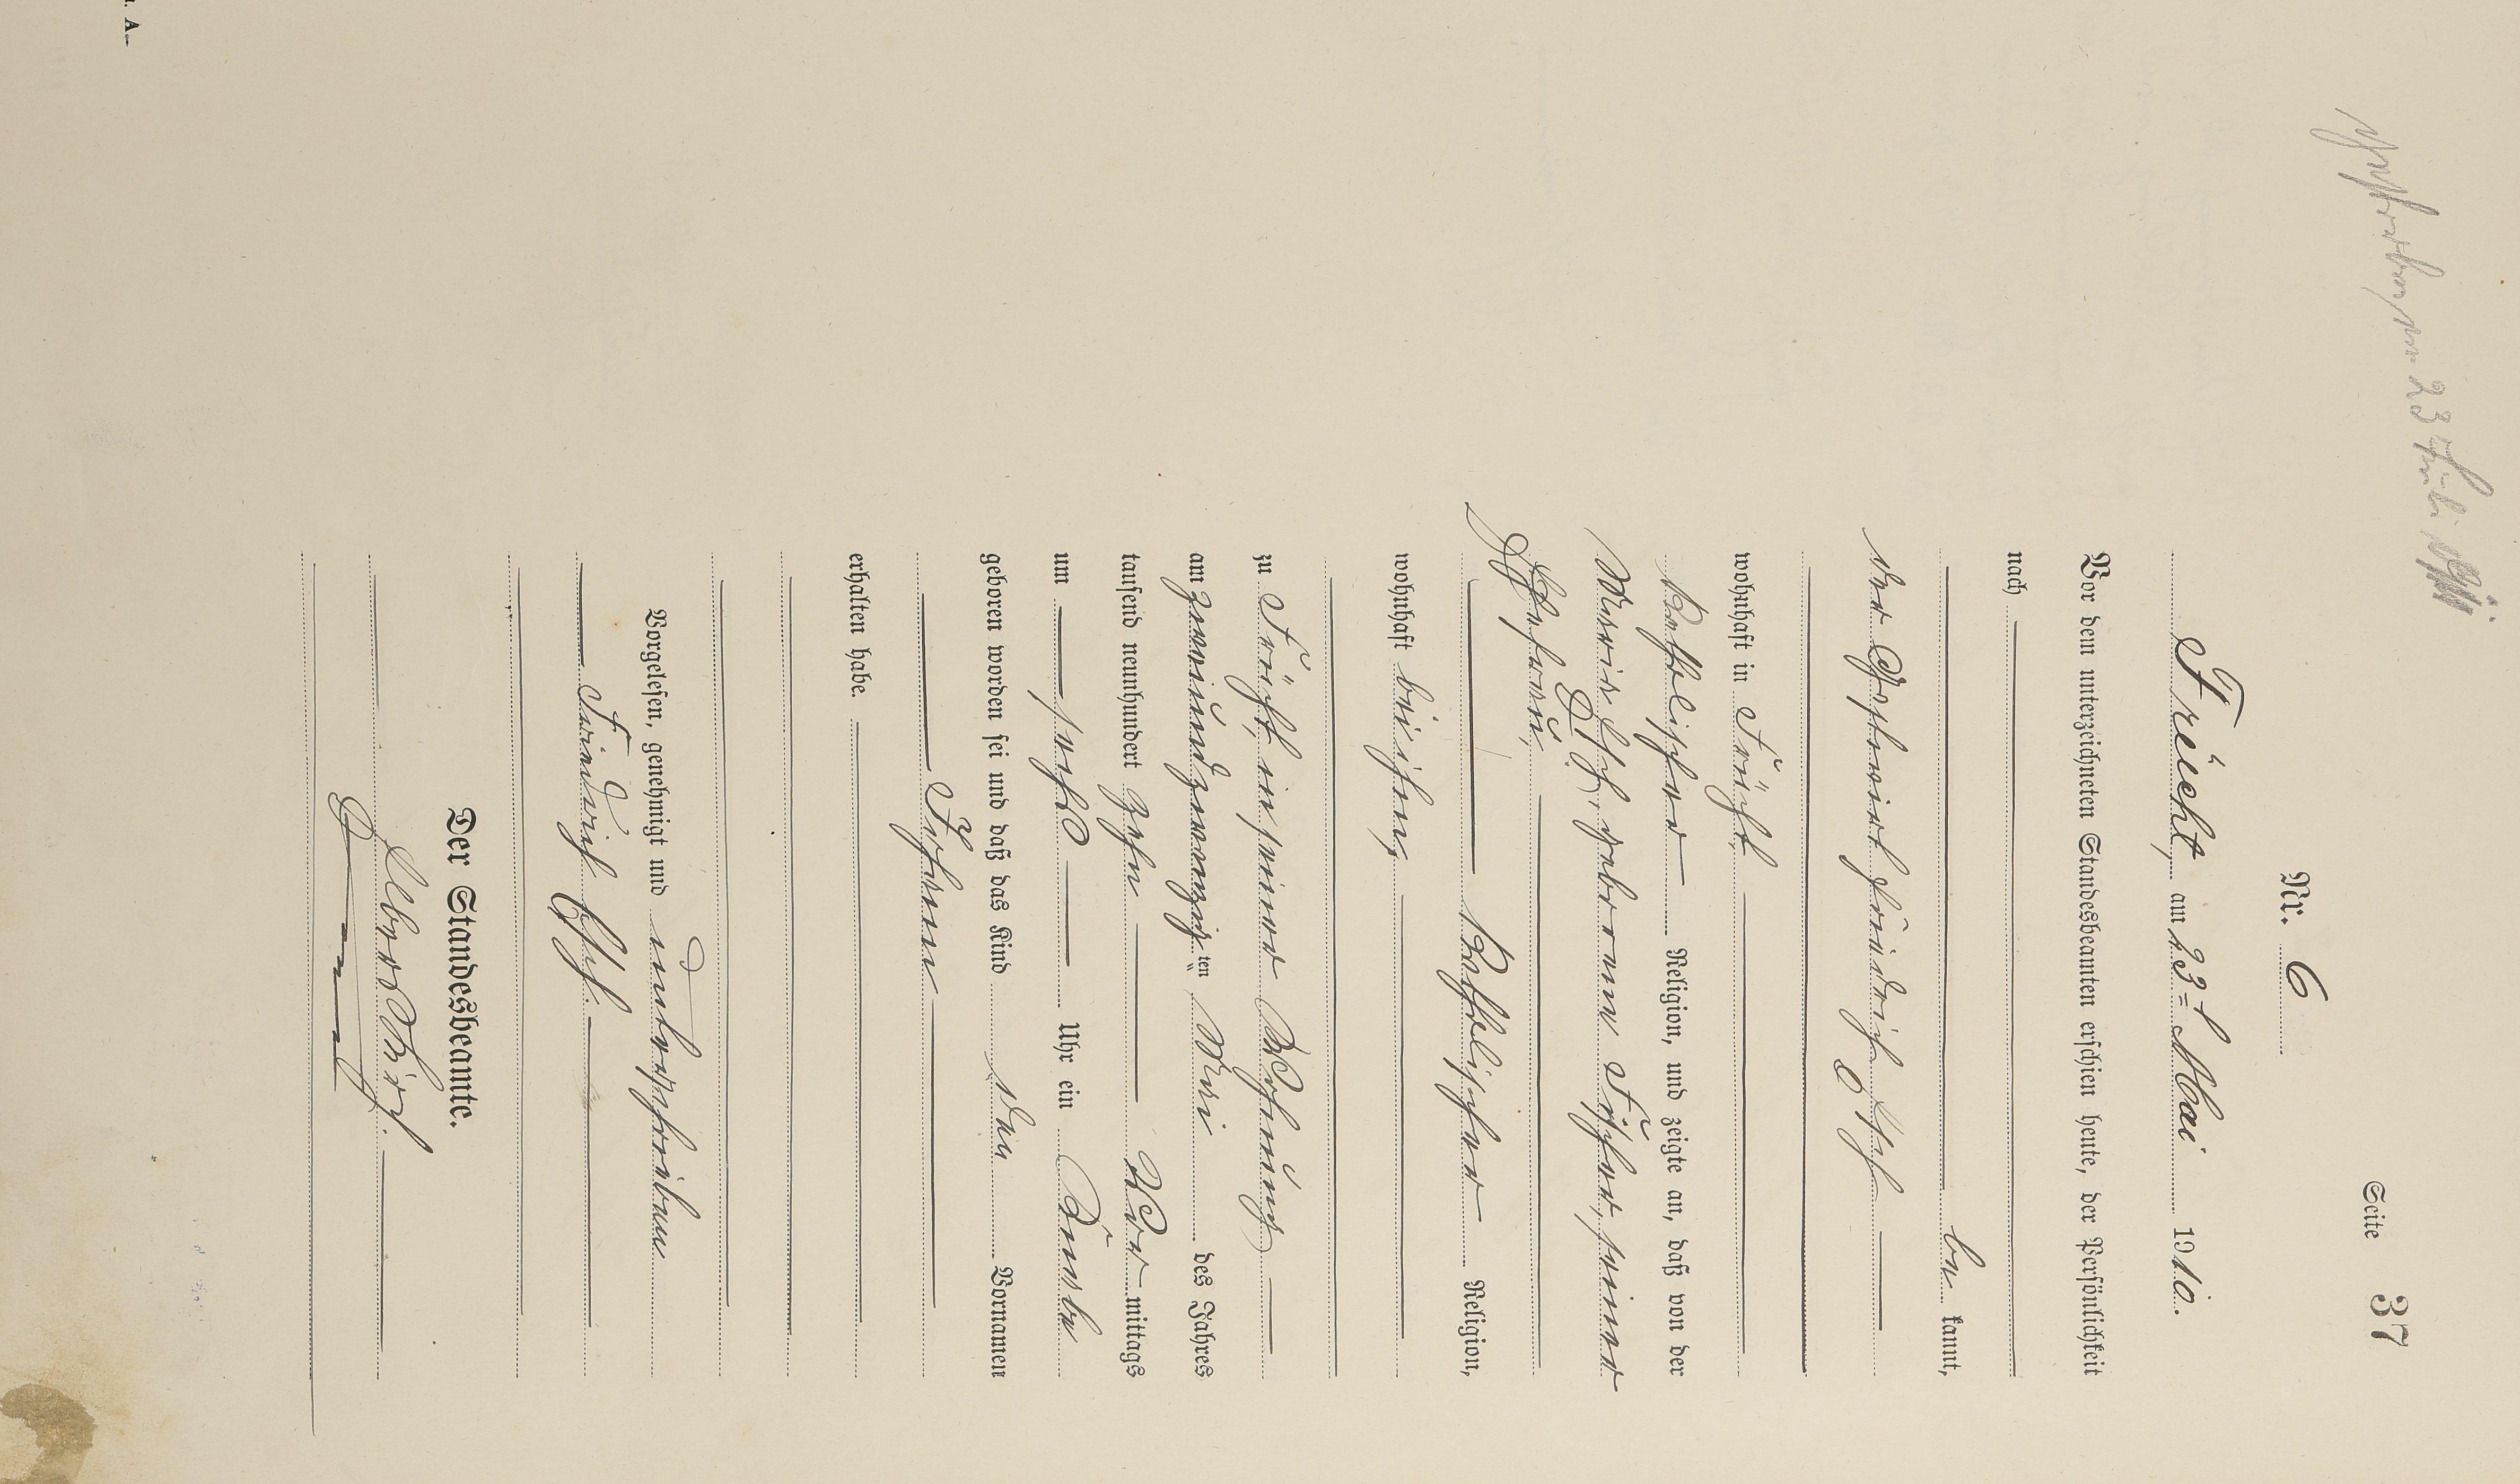 gestorben am 23 Juli
Seite 37
Nr. 6
Frücht, am 23= Mai 1910.
Vor dem unterzeichneten Standesbeamten erschien heute, der Persönlichkeit
nach
be kannt,
der Friedrich
wohnhaft in Frücht,
katholischer Religion, und zeigte an, daß von der
Marie geborenen seiner
Ehefrau,
katholischer Religion,
wohnhaft bei ihm,
zu Frücht, in seiner Wohnung
am zweiundzwanzig ten Mai des Jahres
tausend neunhundert zehn Vor mittags
um sechs Uhr ein Knabe
geboren worden sei und daß das Kind den Vornamen
erhalten habe.
Vorgelesen, genehmigt und unterschrieben
Friedrich
Der Standesbeamte.
A.